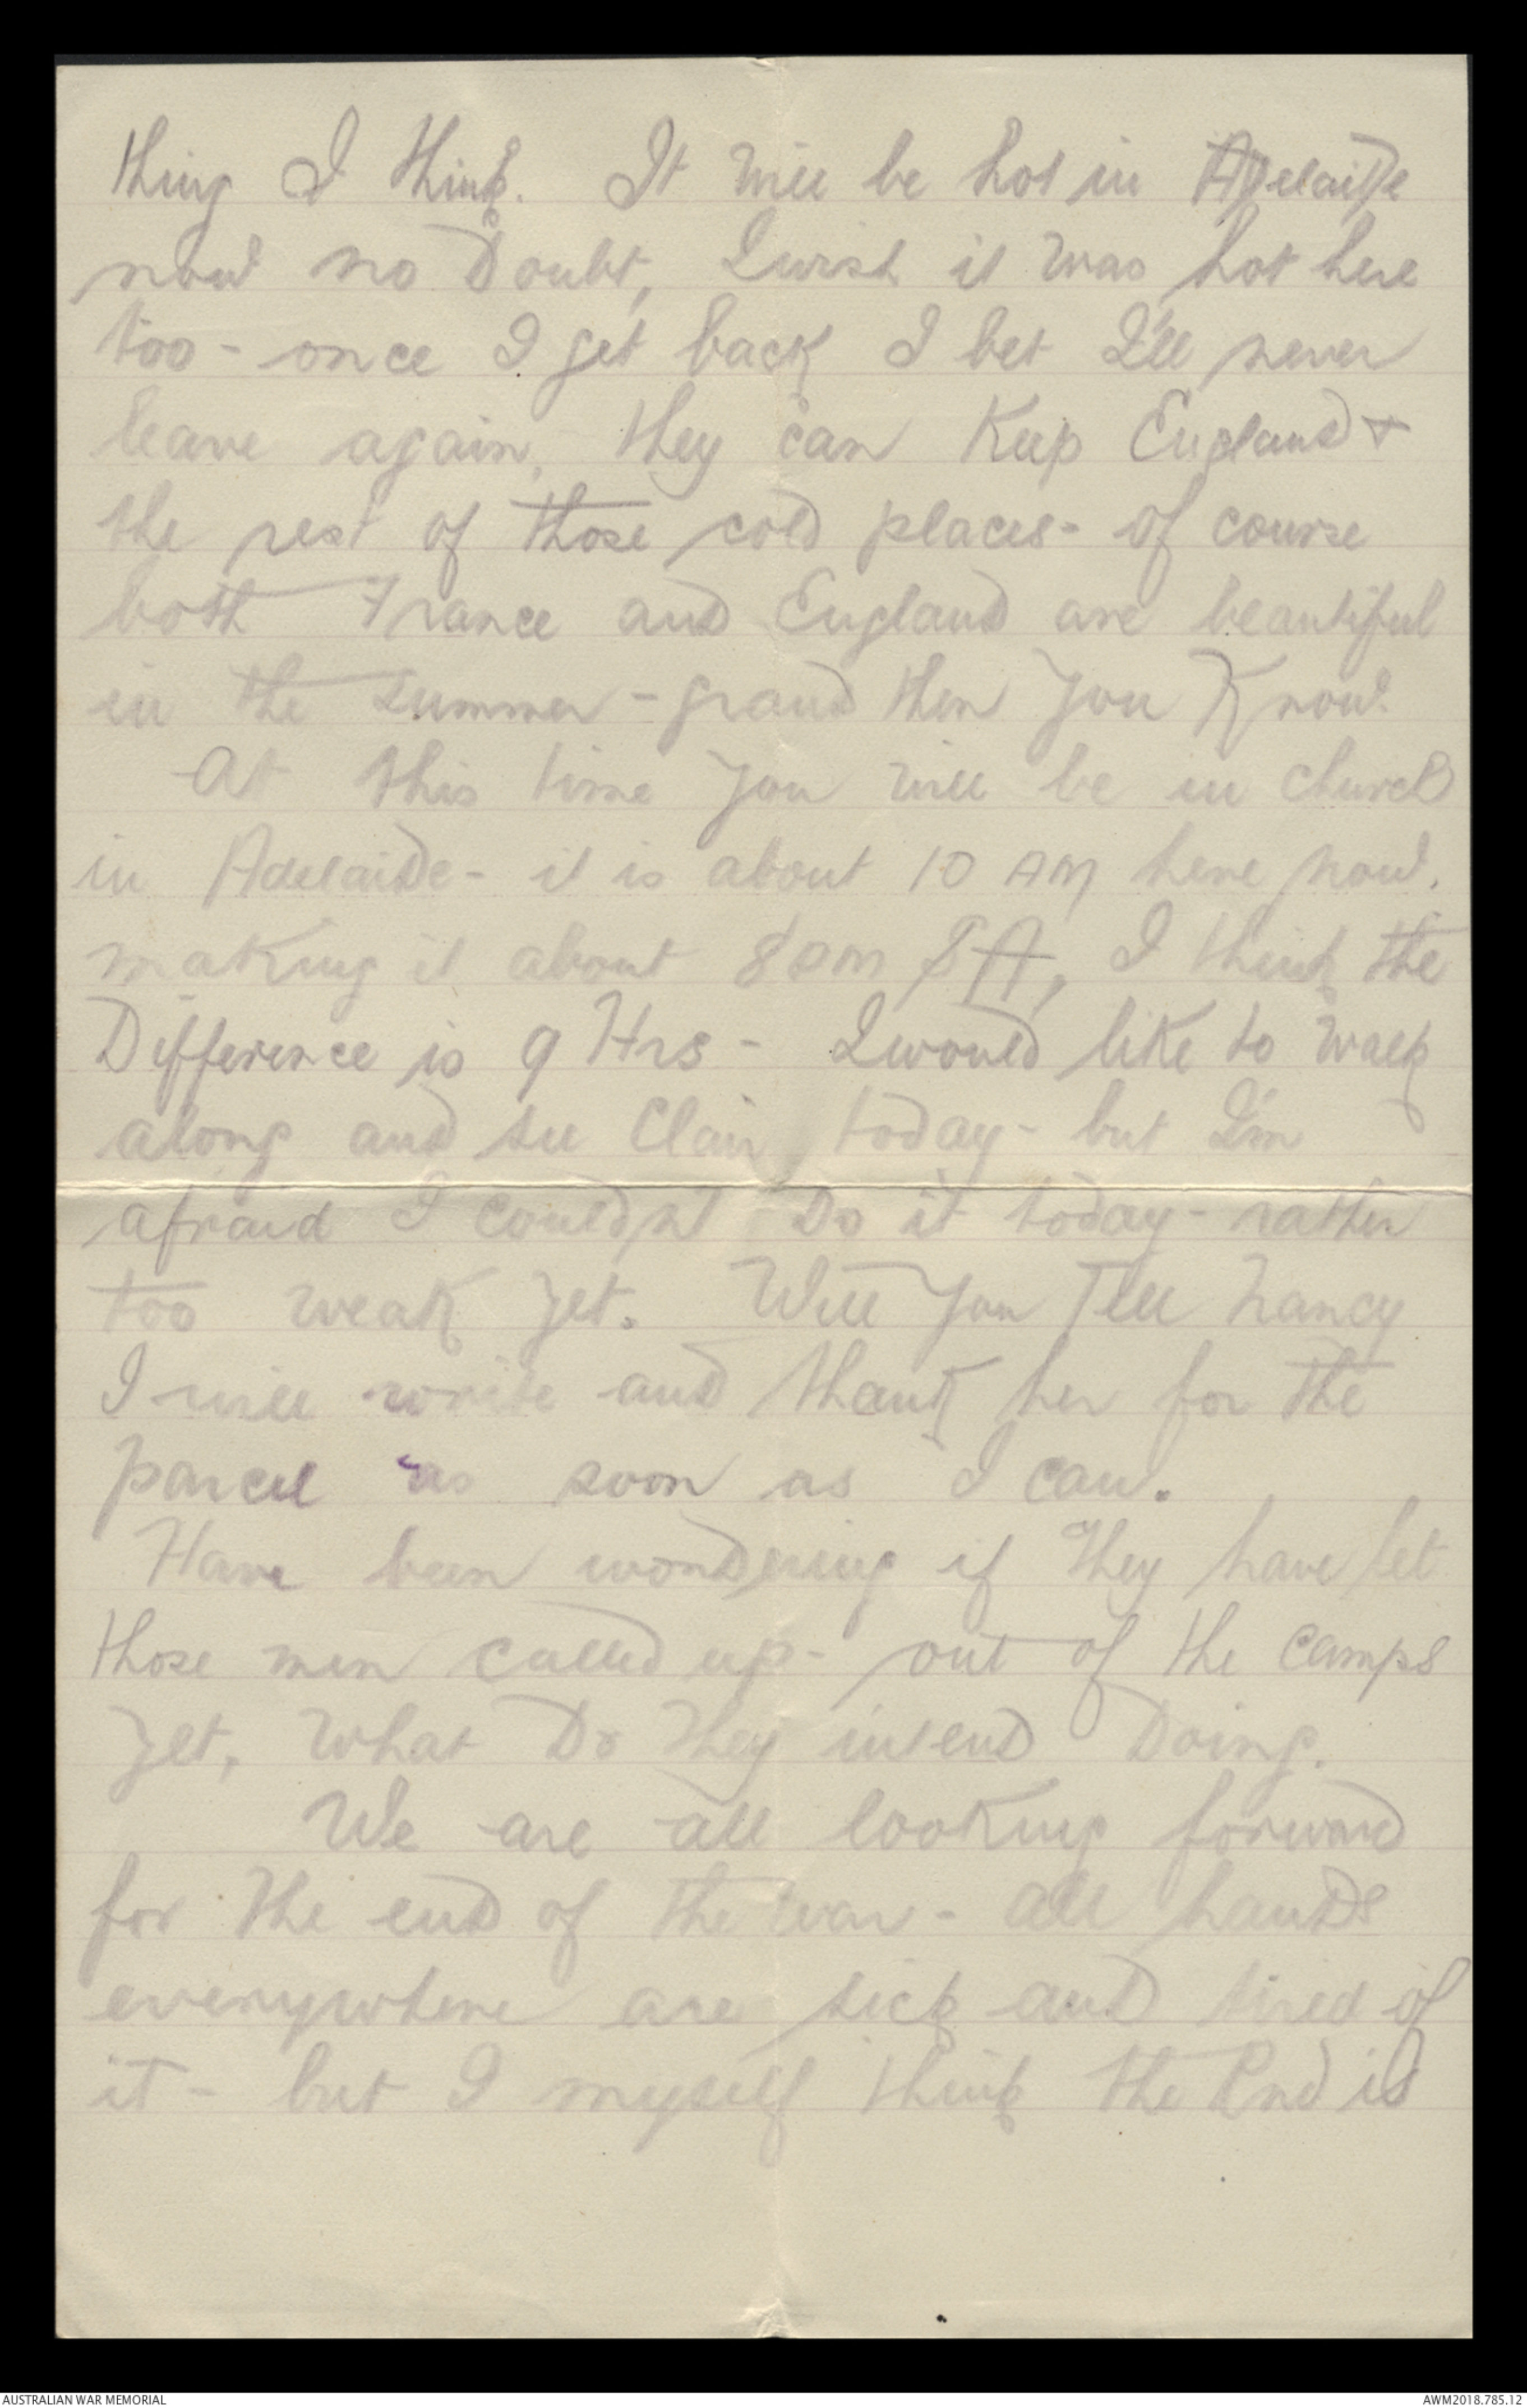 thing I think. It will be hot in Adelaide
now no Doubt, I wish it was hot here
too - once I get back I bet I'll never
leave again, they can Keep England &
the rest of those cold places - of course
both France and England are beautiful
in the summer - grand then you Know.
At this time you will be in church
in Adelaide - it is about 10 AM here now.
making it about 8 pm SA, I think the
Difference is 9 Hrs - I would like to walk
along and see Clair today - but I'm
afraid I couldn't Do it today - rather
too weak yet. Will you Tell Nancy
I will write and thank her for the
parcel as soon as I can.
Have been wondering if they have let
those men called up - out of the camps
yet, What Do they intend Doing.
We are all looking forward
for the end of the war - all hands
everywhere are sick and tired of
it - but I myself think the End is
AUSTRALIAN WAR MEMORIAL
AWM2018.785.12